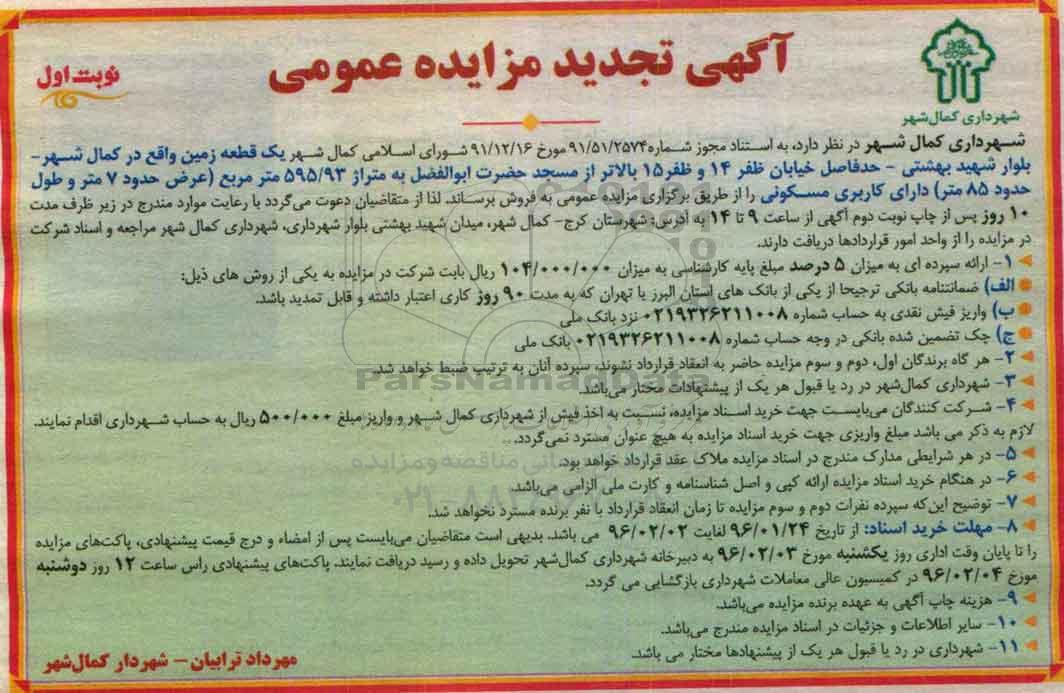 آگهی تجدید مزایده عمومی
نوبت اول
شهرداری کمال‌شهر
شهرداری کمال شهر در نظر دارد، به استناد مجوز شماره ۹۱/۵۱/۲۵۷۴ مورخ ۹۱/۱۲/۱۶ شورای اسلامی کمال شهر یک قطعه زمین واقع در کمال شهر-
بلوار شهید بهشتی - حدفاصل خیابان ظفر ۱۴ و ظفر۱۵ بالاتر از مسجد حضرت ابوالفضل به متراژ ۵۹۵/۹۳ متر مربع (عرض حدود ۷ متر و طول
حدود ۸۵ متر) دارای کاربری مسکونی را از طریق برگزاری مزایده عمومی به فروش برساند. لذا از متقاضیان دعوت می‌گردد با رعایت موارد مندرج در زیر ظرف مدت
۱۰ روز پس از چاپ نوبت دوم آگهی از ساعت ۹ تا ۱۴ به آدرس: شهرستان کرج- کمال شهر، میدان شهید بهشتی بلوار شهرداری، شهرداری کمال شهر مراجعه و اسناد شرکت
در مزایده را از واحد امور قراردادها دریافت دارند.
۱- ارائه سپرده ای به میزان ۵ درصد مبلغ پایه کارشناسی به میزان ۱۰۴/۰۰۰/۰۰۰ ریال بابت شرکت در مزایده به یکی از روش های ذیل:
الف) ضمانتنامه بانکی ترجیحا از یکی از بانک های استان البرز یا تهران که به مدت ۹۰ روز کاری اعتبار داشته و قابل تمدید باشد.
ب) واریز فیش نقدی به حساب شماره ۰۲۱۹۳۲۶۲۱۱۰۰۸ نزد بانک ملی
ج) چک تضمین شده بانکی در وجه حساب شماره ۰۲۱۹۳۲۶۲۱۱۰۰۸ بانک ملی
۲- هر گاه برندگان اول، دوم و سوم مزایده حاضر به انعقاد قرارداد نشوند، سپرده آنان به ترتیب ضبط خواهد شد.
۳- شهرداری کمال‌شهر در رد یا قبول هر یک از پیشنهادات مختار می‌باشد.
۴- شرکت کنندگان می‌بایست جهت خرید اسناد مزایده، نسبت به اخذ فیش از شهرداری کمال شهر و واریز مبلغ ۵۰۰/۰۰۰ ریال به حساب شهرداری اقدام نمایند.
لازم به ذکر می باشد مبلغ واریزی جهت خرید اسناد مزایده به هیچ عنوان مسترد نمی‌گردد.
۵- در هر شرایطی مدارک مندرج در اسناد مزایده ملاک عقد قرارداد خواهد بود.
۶- در هنگام خرید اسناد مزایده ارائه کپی و اصل شناسنامه و کارت ملی الزامی می‌باشد.
۷- توضیح این‌که سپرده نفرات دوم و سوم مزایده تا زمان انعقاد قرارداد با نفر برنده مسترد نخواهد شد.
۸- مهلت خرید اسناد: از تاریخ ۹۶/۰۱/۲۴ لغایت ۹۶/۰۲/۰۲ می باشد. بدیهی است متقاضیان می‌بایست پس از امضاء و درج قیمت پیشنهادی، پاکت‌های مزایده
را تا پایان وقت اداری روز یکشنبه مورخ ۹۶/۰۲/۰۳ به دبیرخانه شهرداری کمال‌شهر تحویل داده و رسید دریافت نمایند. پاکت‌های پیشنهادی راس ساعت ۱۲ روز دوشنبه
مورخ ۹۶/۰۲/۰۴ در کمیسیون عالی معاملات شهرداری بازگشایی می گردد.
۹- هزینه چاپ آگهی به عهده برنده مزایده می‌باشد.
۱۰- سایر اطلاعات و جزئیات در اسناد مزایده مندرج می‌باشد.
۱۱- شهرداری در رد یا قبول هر یک از پیشنهادها مختار می باشد.
مهرداد ترابیان- شهردار کمال‌شهر
ParsNamadData